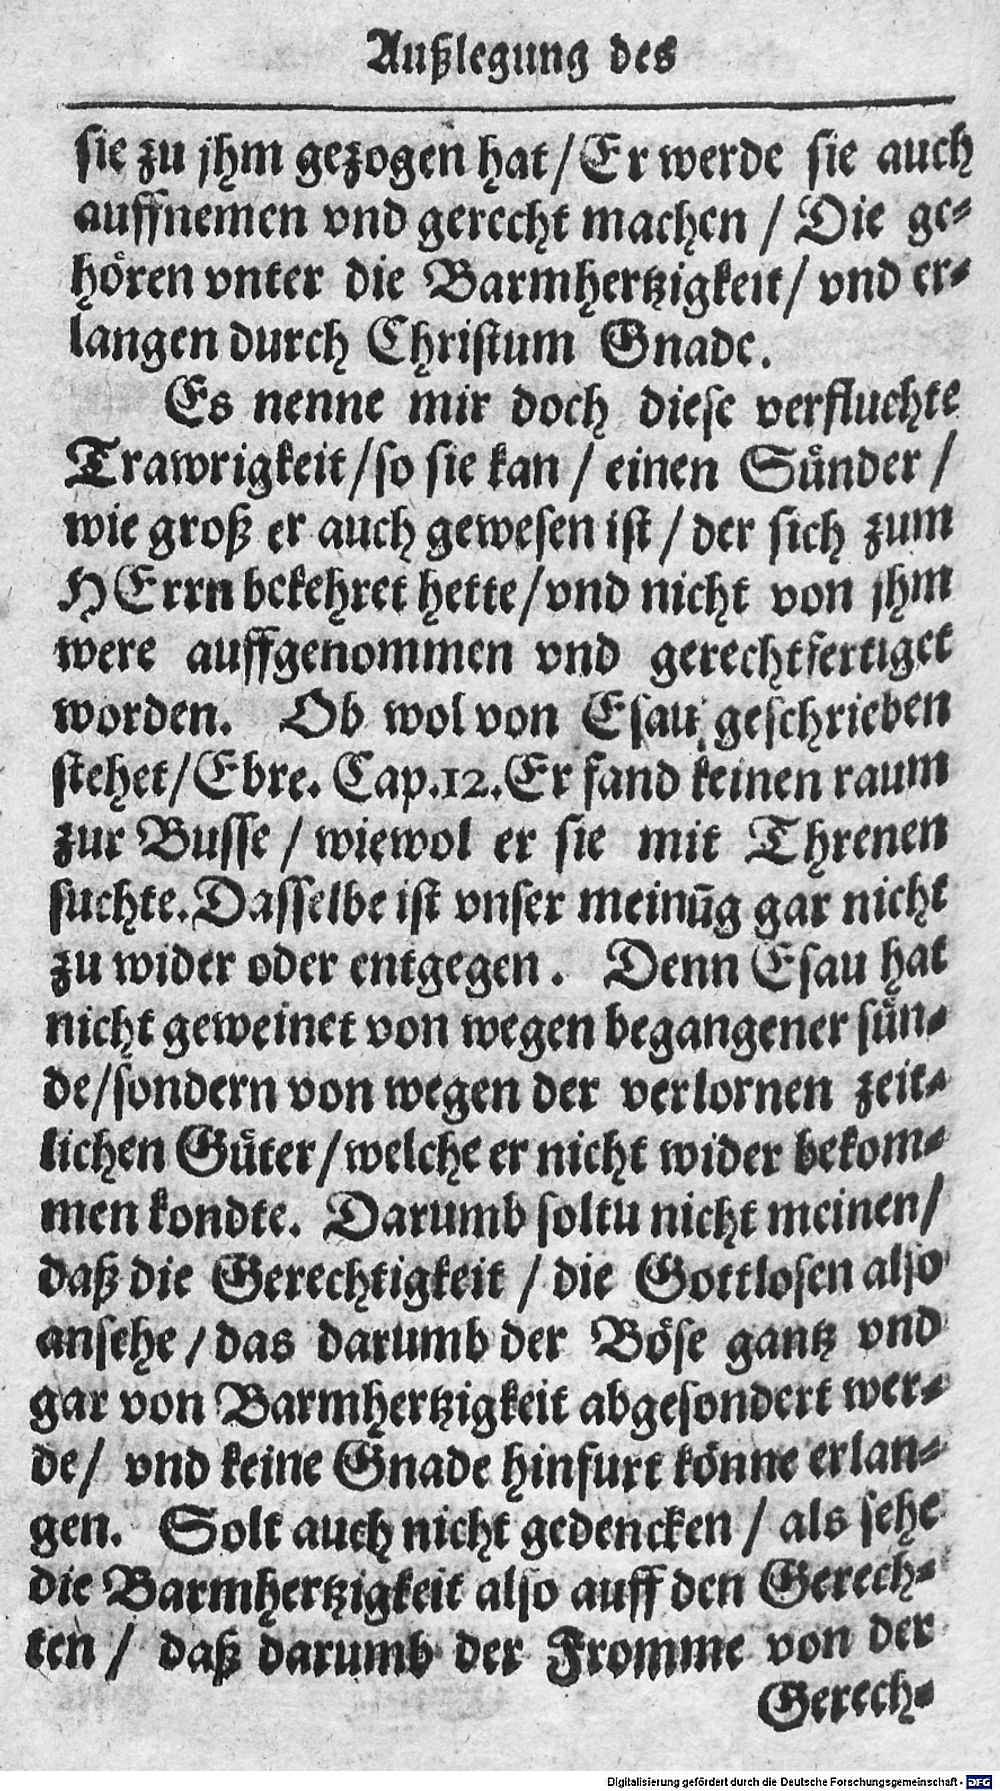 Außlegung des
sie zu jhm gezogen hat / Er werde sie auch
auffnemen vnd gerecht machen / Die ge-
hören vnter die Barmhertzigkeit / vnd er-
langen durch Christum Gnade.
Es nenne mir doch diese verfluchte
Trawrigkeit / so sie kan / einen Sünder /
wie groß er auch gewesen ist / der sich zum
HErrn bekehret hette / vnd nicht von jhm
were auffgenommen vnd gerechtfertiget
worden. Ob wol von Esau geschrieben
stehet / Ebre. Cap. 12. Er fand keinen raum
zur Busse / wiewol er sie mit Threnen
suchte. Dasselbe ist vnser meinūg gar nicht
zu wider oder entgegen. Denn Esau hat
nicht geweinet von wegen begangener sün-
de / sondern von wegen der verlornen zeit-
lichen Güter / welche er nicht wider bekom-
men kondte. Darumb soltu nicht meinen /
daß die Gerechtigkeit / die Gottlosen also
ansehe / das darumb der Böse gantz vnd
gar von Barmhertzigkeit abgesondert wer-
de / vnd keine Gnade hinfurt könne erlan-
gen. Solt auch nicht gedencken / als sehe
die Barmhertzigkeit also auff den Gerech-
ten / daß darumb der Fromme von der
Gerech-
Digitalisierung gefördert durch die Deutsche Forschungsgemeinschaft - DFG